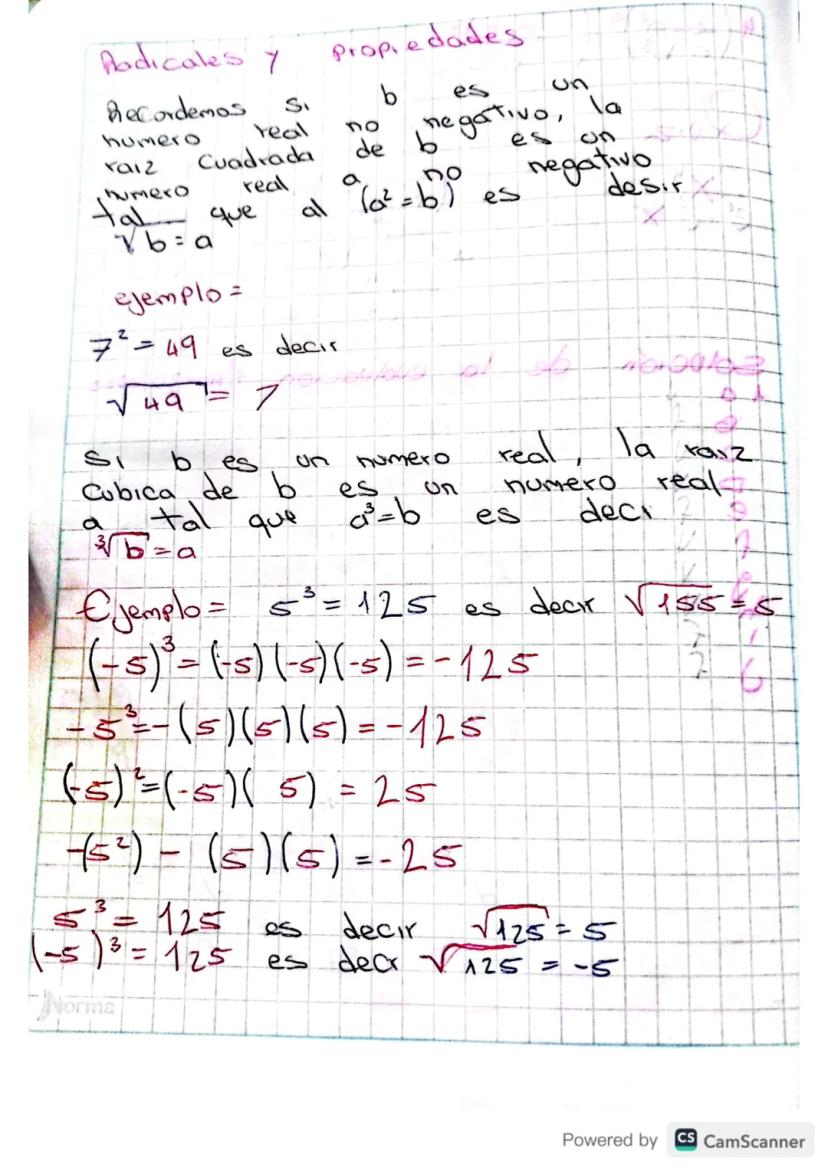 Radicales y propiedades
Recordemos si b es un
numero real no negativo, la
raiz cuadrada de b es un
numero real a no negativo
tal que al (a² = b) es desir
√b = a
ejemplo =
7² = 49 es decir
√49 = 7
Si b es un numero real, la raiz
Cubica de b es un numero real
a tal que a³=b es deci
∛b = a
Ejemplo = 5³ = 125 es decir √155 = 5
(-5)³ = (-5)(-5)(-5) = -125
-5³ = -(5)(5)(5) = -125
(-5)² = (-5)( 5) = 25
-(5²) - (5)(5) = -25
5³ = 125 es decir √125 = 5
(-5)³ = 125 es decr √125 = -5
Norma
Powered by CS CamScanner